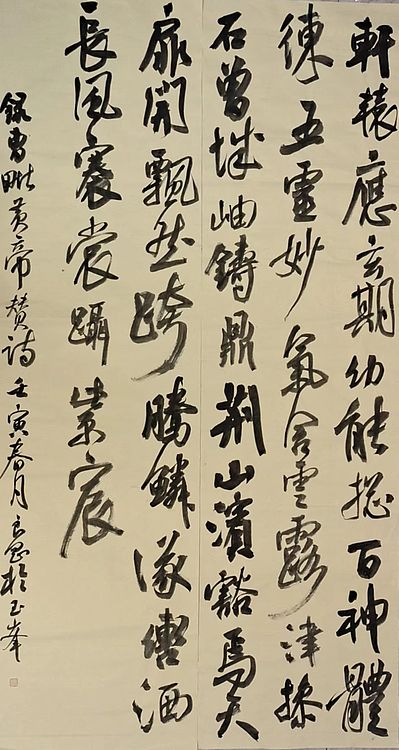 軒轅應玄期幼能摠百神體
練五靈妙氣含雲露津掺
石曾城岫鑄鼎荆山濱豁焉天
扉開飄然跨騰鱗儀轡洒
長風褰裳躡紫宸
録曹毗黄帝赞詩壬寅春月良於玉峯